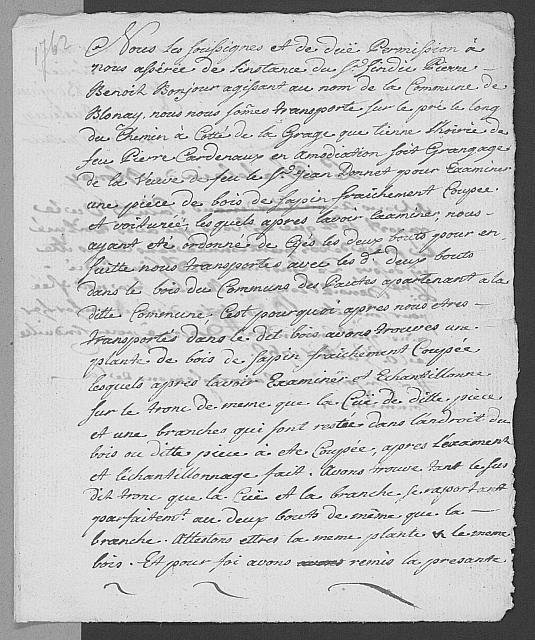 1762
Nous les soussignes et de düe Permission à
nous asserée de l'instance du Sr. Sindic Pierre
Benoit Bonjour agissant au nom de la Commune de
Blonay, nous nous somes transporte sur le pré le long
du Chemin à Cotté de la Grage que tienne l'hoirée de
feu Pierre Cardenaux en amodiation soit Grangage
de la Veuve de feu le Sr. Jean Donnet pour Examiner
une pièce de bois de sapin fraichement Coupée
et voiturée, lesquels apres lavoir Examiner, nous
ayant eté ordonné de les deux bouts pour en
suitte nous transportes avec les dt. deux bouts
dans le bois du Communs des Pautes apartenant a la
ditte Commune, C'est pourquoi apres nous etres
transportés dans le dit bois avons trouves une
plante de bois de sapin fraichement Coupée
lesquels après lavoir Examiner et Echantillonne
sur le tronc de meme que la Cüe de ditte piece
et une branches qui sont restée dans landroit du
bois ou ditte piece à eté Coupée, apres l'exament
et l'echantillonnage fait. Avons trouve tant le sus
dit tronc que la Cüe et la branche se raportant
parfaitemt. au deux bouts de même que la
branche. Attestons etres la meme plante & le meme
bois. Et pour foi avons avons remis la presante